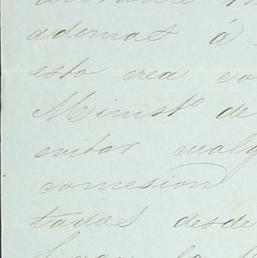 ademas á
esto crea co
Minist.º de
evitar cualq
comesion
tadas desde